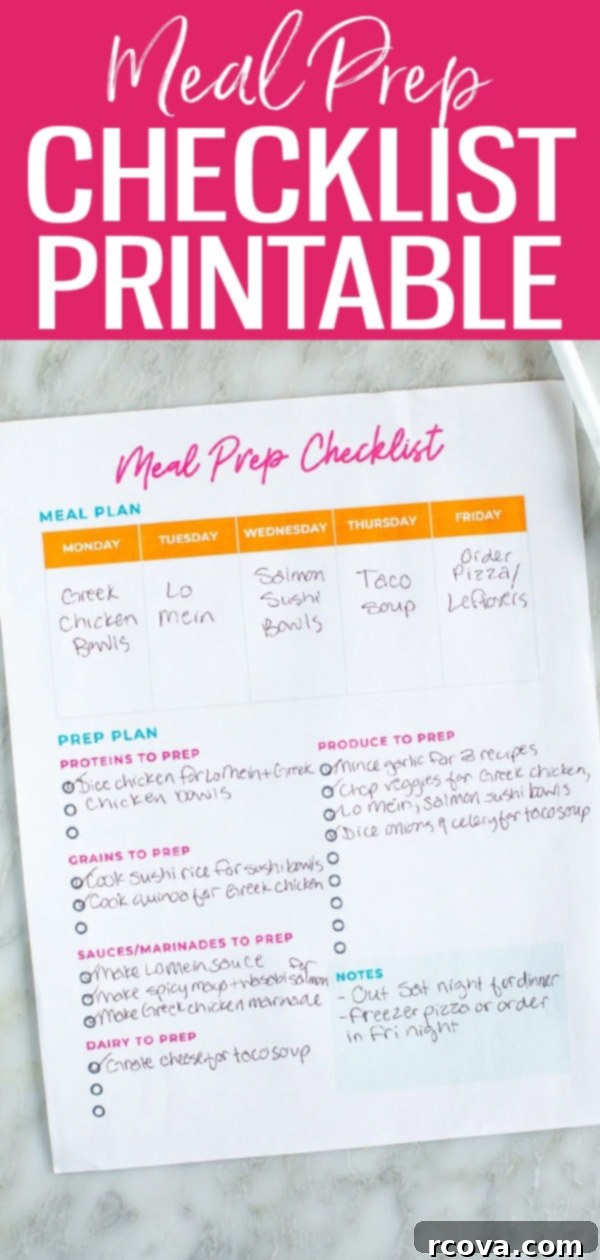 Meal Prep
CHECKLIST
PRINTABLE
Meal Prep Checklist
MEAL PLAN
MONDAY TUESDAY WEDNESDAY THURSDAY FRIDAY
Greek
Chicken
Bowls
Lo
mein
Salmon
Sushi
Bowls
Taco
Soup
Order
Pizza/
Leftovers
PREP PLAN
PROTEINS TO PREP
Dice chicken for Lo mein + Greek
chicken bowls
GRAINS TO PREP
Cook sushi rice for sushi bowls
Cook quinoa for Greek chicken
SAUCES/MARINADES TO PREP
Make Lo mein sauce
Make spicy mayo + wasabi for salmon
Make Greek chicken marinade
DAIRY TO PREP
Grate cheese for taco soup
PRODUCE TO PREP
Mince garlic for 3 recipes
Chop veggies for Greek chicken,
Lo mein, salmon sushi bowls
Dice onions & celery for taco soup
NOTES
- Out Sat night for dinner
- Freezer pizza or order
in Fri night
rcova.com